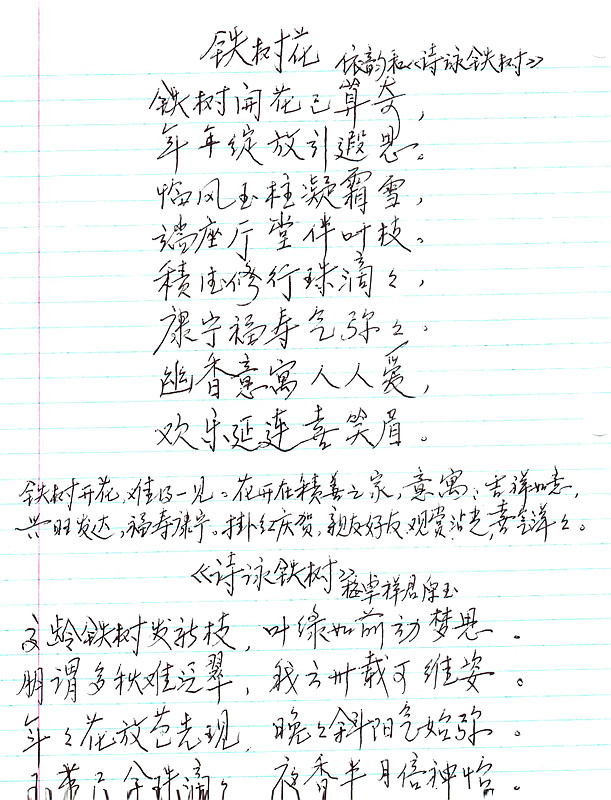 铁树花 依韵和《诗咏铁树》
铁树开花已算奇，
年年绽放引遐思。
临风玉柱凝霜雪，
端座厅堂伴叶枝。
积德修行珠滴々，
康宁福寿气弥々。
幽香意寓人人爱，
欢乐延连喜笑眉。
铁树开花，难得一见。花开在积善之家，意寓：吉祥如意，
兴旺发达，福寿康宁。挂红庆贺，亲友好友、观赏沾光，喜气洋々。
《诗咏铁树》 卓祥君原玉
高龄铁树发新枝，叶绿如前动梦思。
朋谓多秋难泛翠，我云卅载可维姿。
年々花放苞先现，晚々斜阳气始弥。
珠滴々 夜香半月倍神怡。